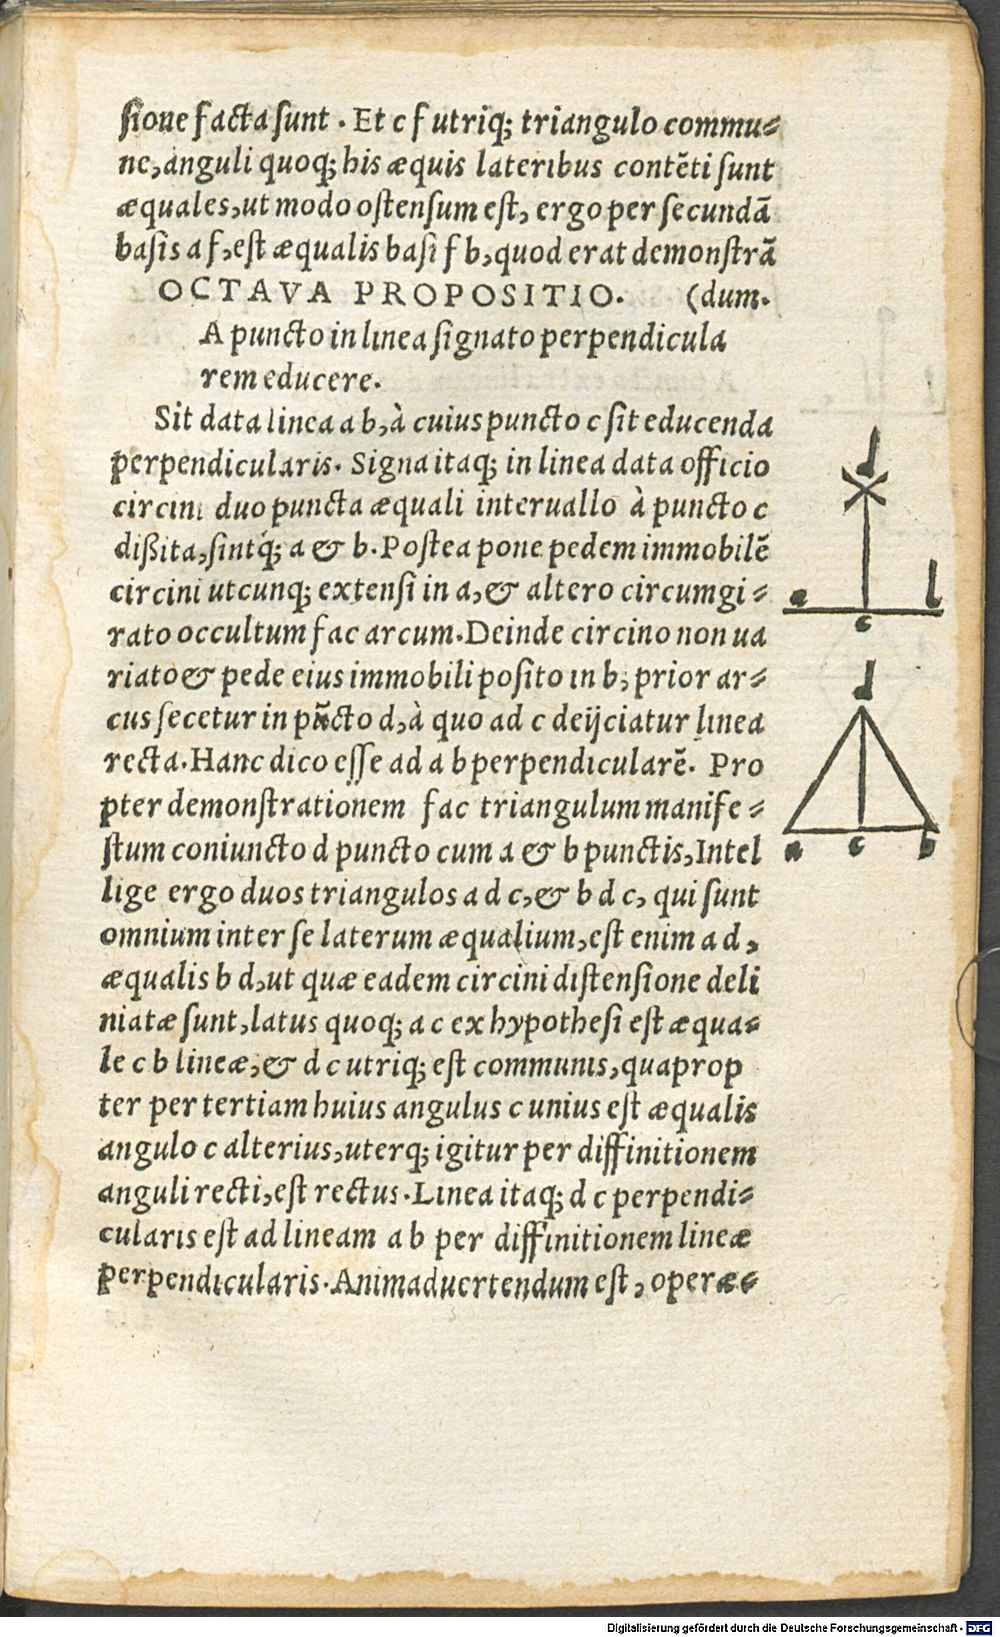 ſione facta ſunt . Et c f utriq; triangulo commu⸗
ne, anguli quoq; his æquis lateribus contẽti ſunt
æquales, ut modo oſtenſum eſt, ergo per ſecundã
baſis a f, eſt æqualis baſi f b, quod erat demonſtrã
OCTAVA PROPOSITIO. (dum.
A puncto in linea ſignato perpendicula
rem educere.
Sit data linea a b, à cuius puncto c ſit educenda
perpendicularis. Signa itaq; in linea data officio
circini duo puncta æquali interuallo à puncto c
dißita, ſintq́; a & b. Poſtea pone pedem immobilẽ
circini utcunq; extenſi in a, & altero circumgi⸗
rato occultum fac arcum. Deinde circino non ua
riato & pede eius immobili poſito in b, prior ar⸗
cus ſecetur in pũcto d, à quo ad c deijciatur linea
recta. Hanc dico eſſe ad a b perpendicularẽ. Pro
pter demonſtrationem fac triangulum manife⸗
ſtum coniuncto d puncto cum a & b punctis, Intel
lige ergo duos triangulos a d c, & b d c, qui ſunt
omnium inter ſe laterum æqualium, eſt enim a d,
æqualis b d, ut quæ eadem circini diſtenſione deli
niatæ ſunt, latus quoq; a c ex hypotheſi eſt æqua⸗
le c b lineæ, & d c utriq; eſt communis, quaprop
ter per tertiam huius angulus c unius eſt æqualis
angulo c alterius, uterq; igitur per diffinitionem
anguli recti, eſt rectus. Linea itaq; d c perpendi⸗
cularis eſt ad lineam a b per diffinitionem lineæ
perpendicularis. Animaduertendum eſt, operæ⸗
d
a b
c
d
a c b
Digitalisierung gefördert durch die Deutsche Forschungsgemeinschaft - DFG